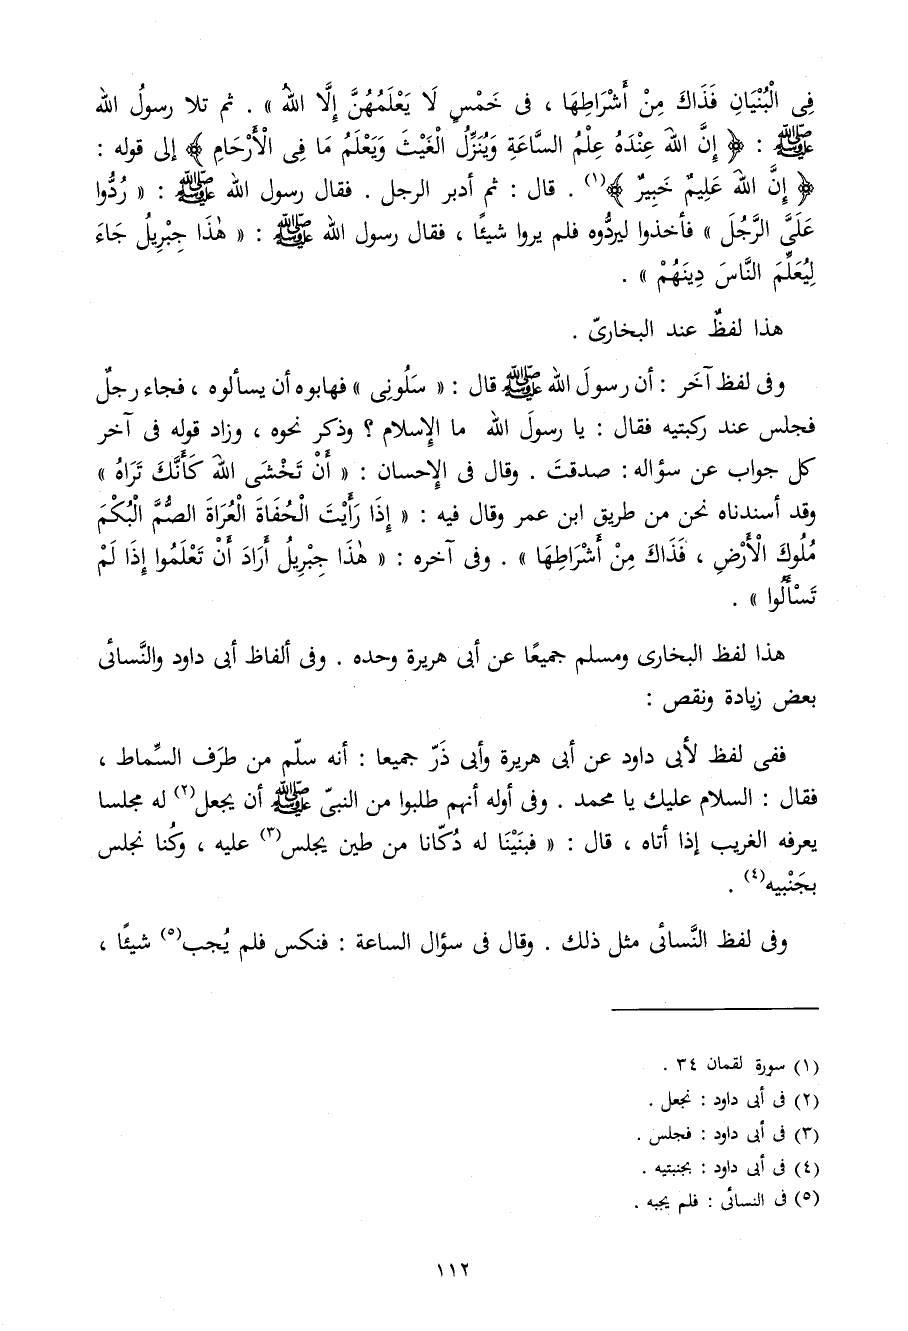 فِى الْبُنْيَانِ فَذَاكَ مِنْ أَشْرَاطِهَا ، فى خَمْسٍ لَا يَعْلَمُهُنَّ إِلَّا اللهُ » . ثم تلا رسولُ الله
ﷺ : ﴿ إِنَّ اللهَ عِنْدَهُ عِلْمُ السَّاعَةِ وَيُنَزِّلُ الْغَيْثَ وَيَعْلَمُ مَا فِى الْأَرْحَامِ ﴾ إلى قوله :
﴿ إِنَّ اللهَ عَلِيمٌ خَبِيرٌ ﴾(١) . قال : ثم أدبر الرجل . فقال رسول الله ﷺ : « رُدُّوا
عَلَىَّ الرَّجُلَ » فأخذوا ليردُّوه فلم يروا شيئًا ، فقال رسول الله ﷺ : « هٰذَا جِبْرِيلُ جَاءَ
لِيُعَلِّمَ النَّاسَ دِينَهُمْ » .
هذا لفظٌ عند البخارىّ .
وفى لفظ آخَر : أن رسولَ الله ﷺ قال : « سَلُونِى » فهابوه أن يسألوه ، فجاء رجلٌ
فجلس عند ركبتيه فقال : يا رسولَ الله ما الإِسلام ؟ وذكر نحوه ، وزاد قوله فى آخر
كل جواب عن سؤاله : صدقتَ . وقال فى الإِحسان : « أَنْ تَخْشَى اللهَ كَأَنَّكَ تَرَاهُ »
وقد أسندناه نحن من طريق ابن عمر وقال فيه : « إِذَا رَأَيْتَ الْحُفَاةَ الْعُرَاةَ الصُّمَّ الْبُكْمَ
مُلُوكَ الْأَرْضِ ، فَذَاكَ مِنْ أَشْرَاطِهَا » . وفى آخره : « هٰذَا جِبْرِيلُ أَرَادَ أَنْ تَعْلَمُوا إِذَا لَمْ
تَسْأَلُوا » .
هذا لفظ البخارى ومسلم جميعًا عن أبى هريرة وحده . وفى ألفاظ أبى داود والنَّسائى
بعض زيادة ونقص :
ففى لفظ لأبى داود عن أبى هريرة وأبى ذَرّ جميعا : أنه سلّم من طرَف السِّماط ،
فقال : السلام عليك يا محمد . وفى أوله أنهم طلبوا من النبىّ ﷺ أن يجعل(٢) له مجلسا
يعرفه الغريب إذا أتاه ، قال : « فبنَيْنَا له دُكّانا من طين يجلس(٣) عليه ، وكُنا نجلس
بجَنْبيه(٤) .
وفى لفظ النَّسائى مثل ذلك . وقال فى سؤال الساعة : فنكس فلم يُجب(٥) شيئًا ،
(١) سورة لقمان ٣٤ .
(٢) فى أبى داود : نجعل .
(٣) فى أبى داود : فجلس .
(٤) فى أبى داود : بجنبتيه .
(٥) فى النسائى : فلم يجبه .
١١٢